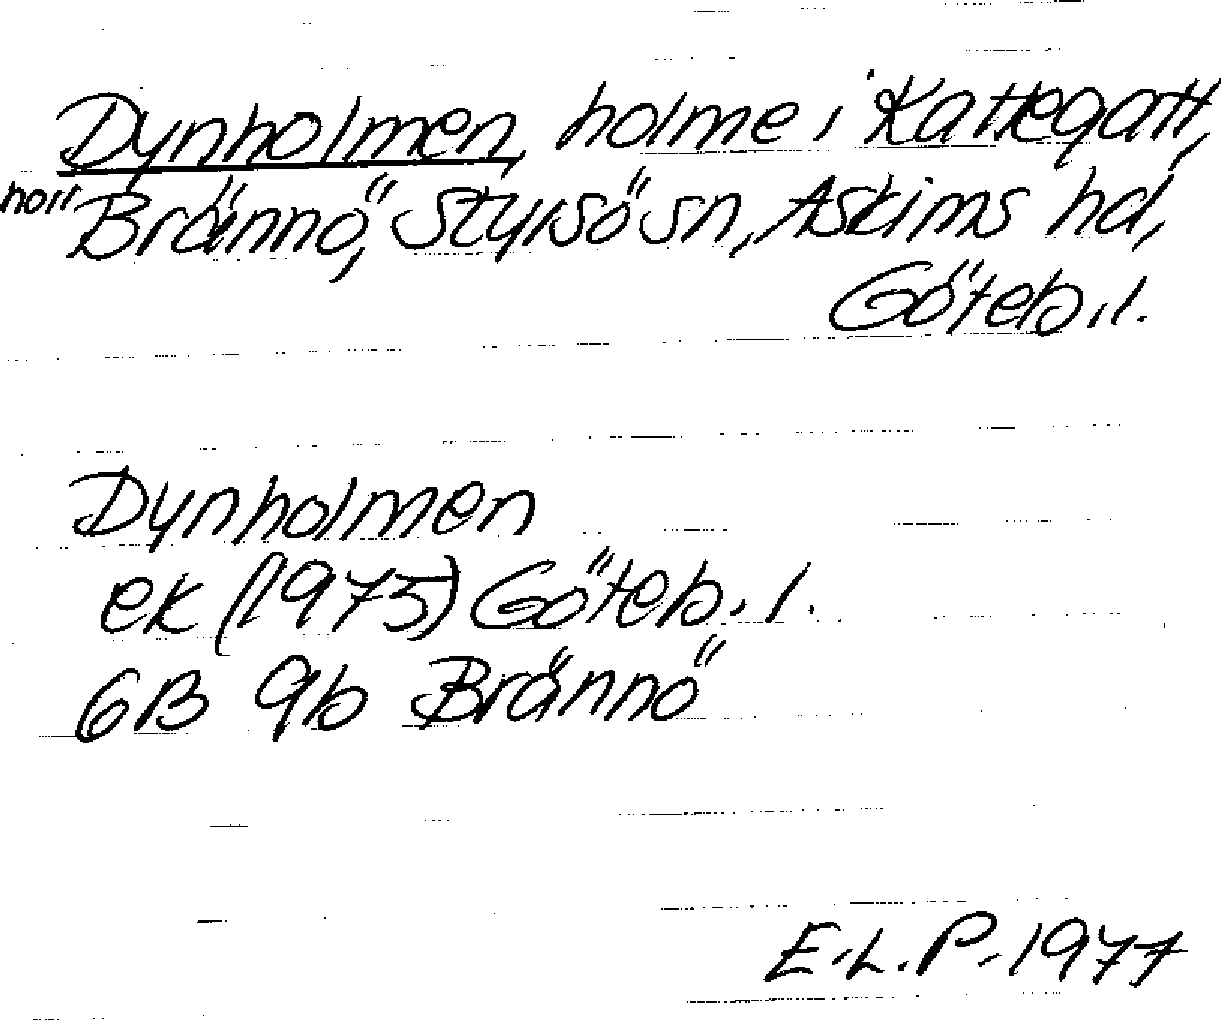 Dynholmen, holme i Kattegatt,
norr Brännö, Styrsö sn, Askims hd,
Göteb. l.
Dynholmen
ek (1975) Göteb. l.
6B 9b Brännö
E.L.P. 1977